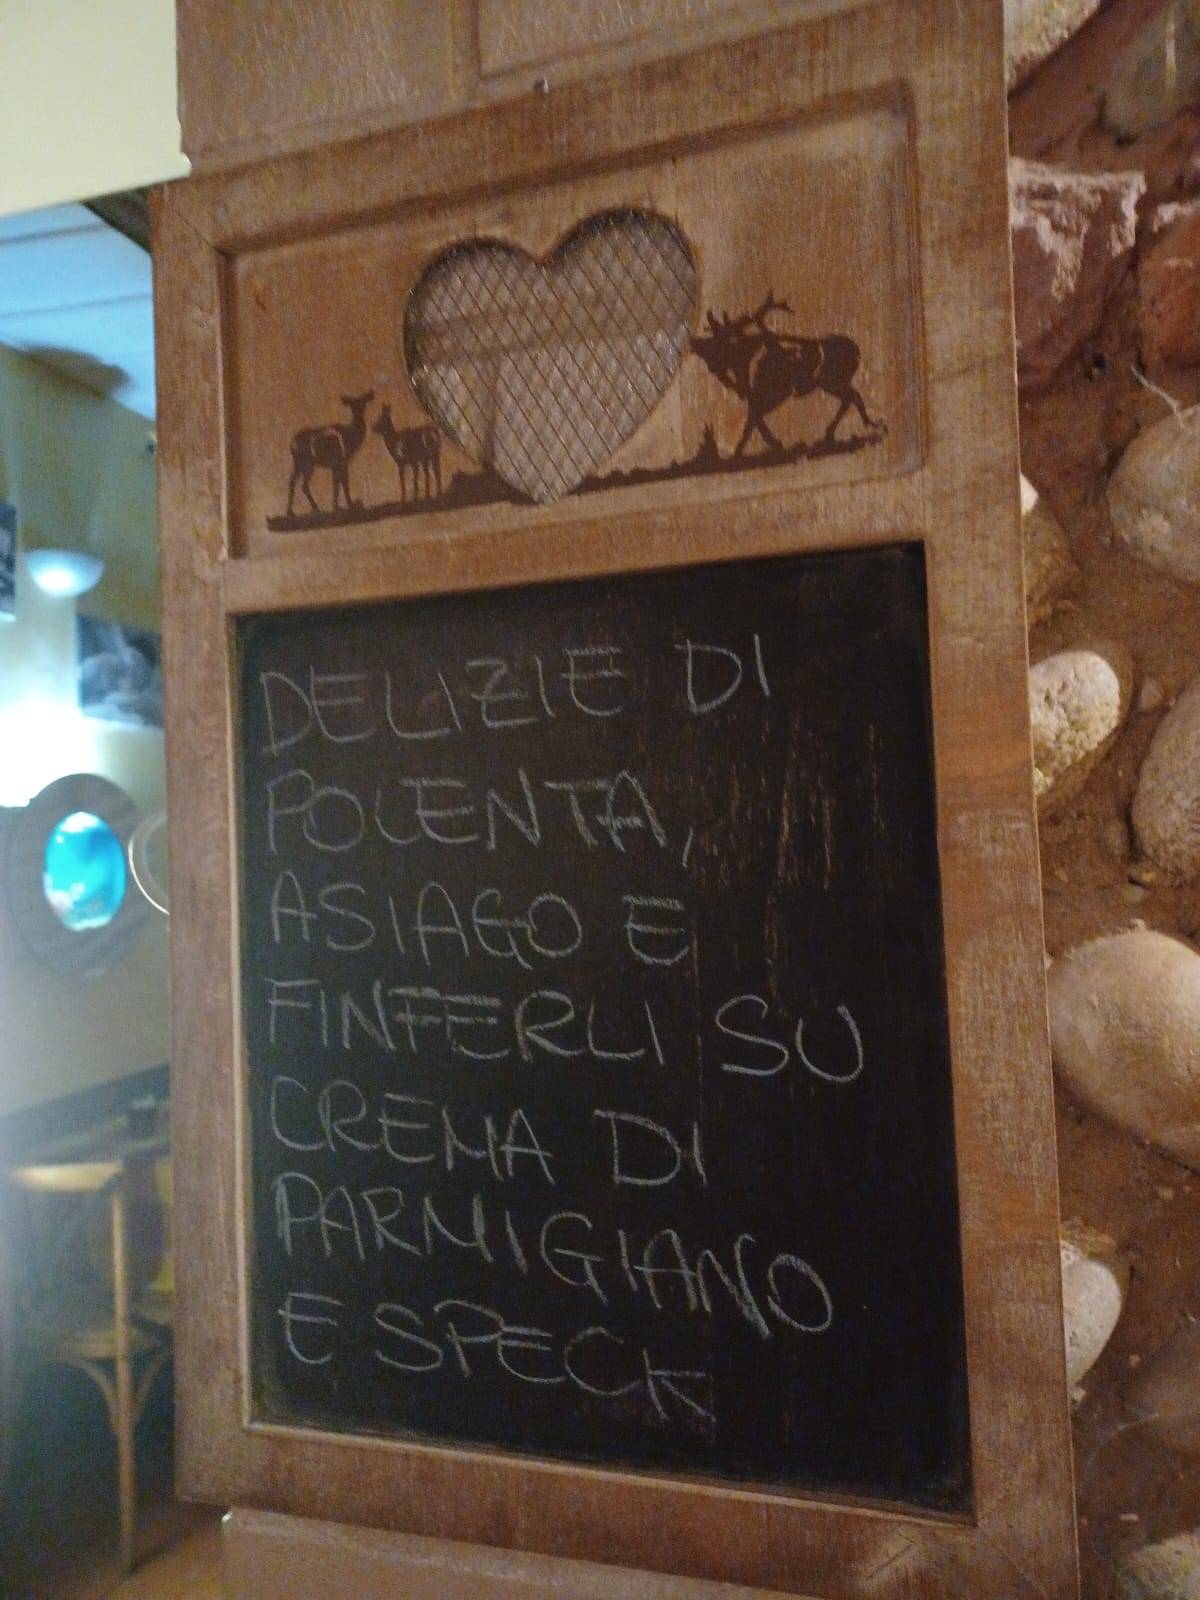 DELIZIE DI
POLENTA,
ASIAGO E
FINFERLI SU
CREMA DI
PARMIGIANO
E SPECK